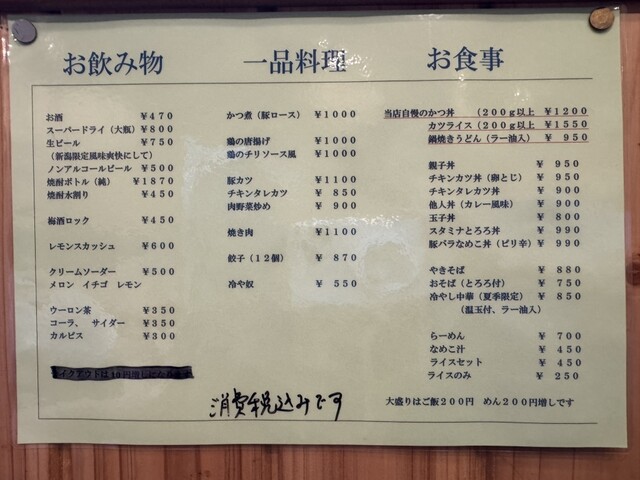 お飲み物
お酒 ¥470
スーパードライ（大瓶）¥800
生ビール ¥750
（新潟限定風味爽快にして）
ノンアルコールビール ¥500
焼酎ボトル（純） ¥1870
焼酎水割り ¥450
梅酒ロック ¥450
レモンスカッシュ ¥600
クリームソーダー ¥500
メロン イチゴ レモン
ウーロン茶 ¥350
コーラ、 サイダー ¥350
カルピス ¥300
テイクアウトは10円増しになります
一品料理
かつ煮（豚ロース） ¥1000
鶏の唐揚げ ¥1000
鶏のチリソース風 ¥1000
豚カツ ¥1000
チキンタレカツ ¥ 850
肉野菜炒め ¥ 900
焼き肉 ¥1100
餃子（12個） ¥ 870
冷や奴 ¥ 550
消費税込みです
お食事
当店自慢のかつ丼 （200g以上 ¥1200
カツライス（200g以上 ¥1550
鍋焼きうどん（ラー油入） ¥ 950
親子丼 ¥ 950
チキンカツ丼（卵とじ） ¥ 950
チキンタレカツ丼 ¥ 900
他人丼（カレー風味） ¥ 900
玉子丼 ¥ 800
スタミナとろろ丼 ¥ 990
豚バラなめこ丼（ピリ辛） ¥ 990
やきそば ¥ 880
おそば（とろろ付） ¥ 750
冷やし中華（夏季限定） ¥ 850
（温玉付、ラー油入）
らーめん ¥ 700
なめこ汁 ¥ 450
ライスセット ¥ 450
ライスのみ ¥ 250
大盛りはご飯200円 めん200円増しです